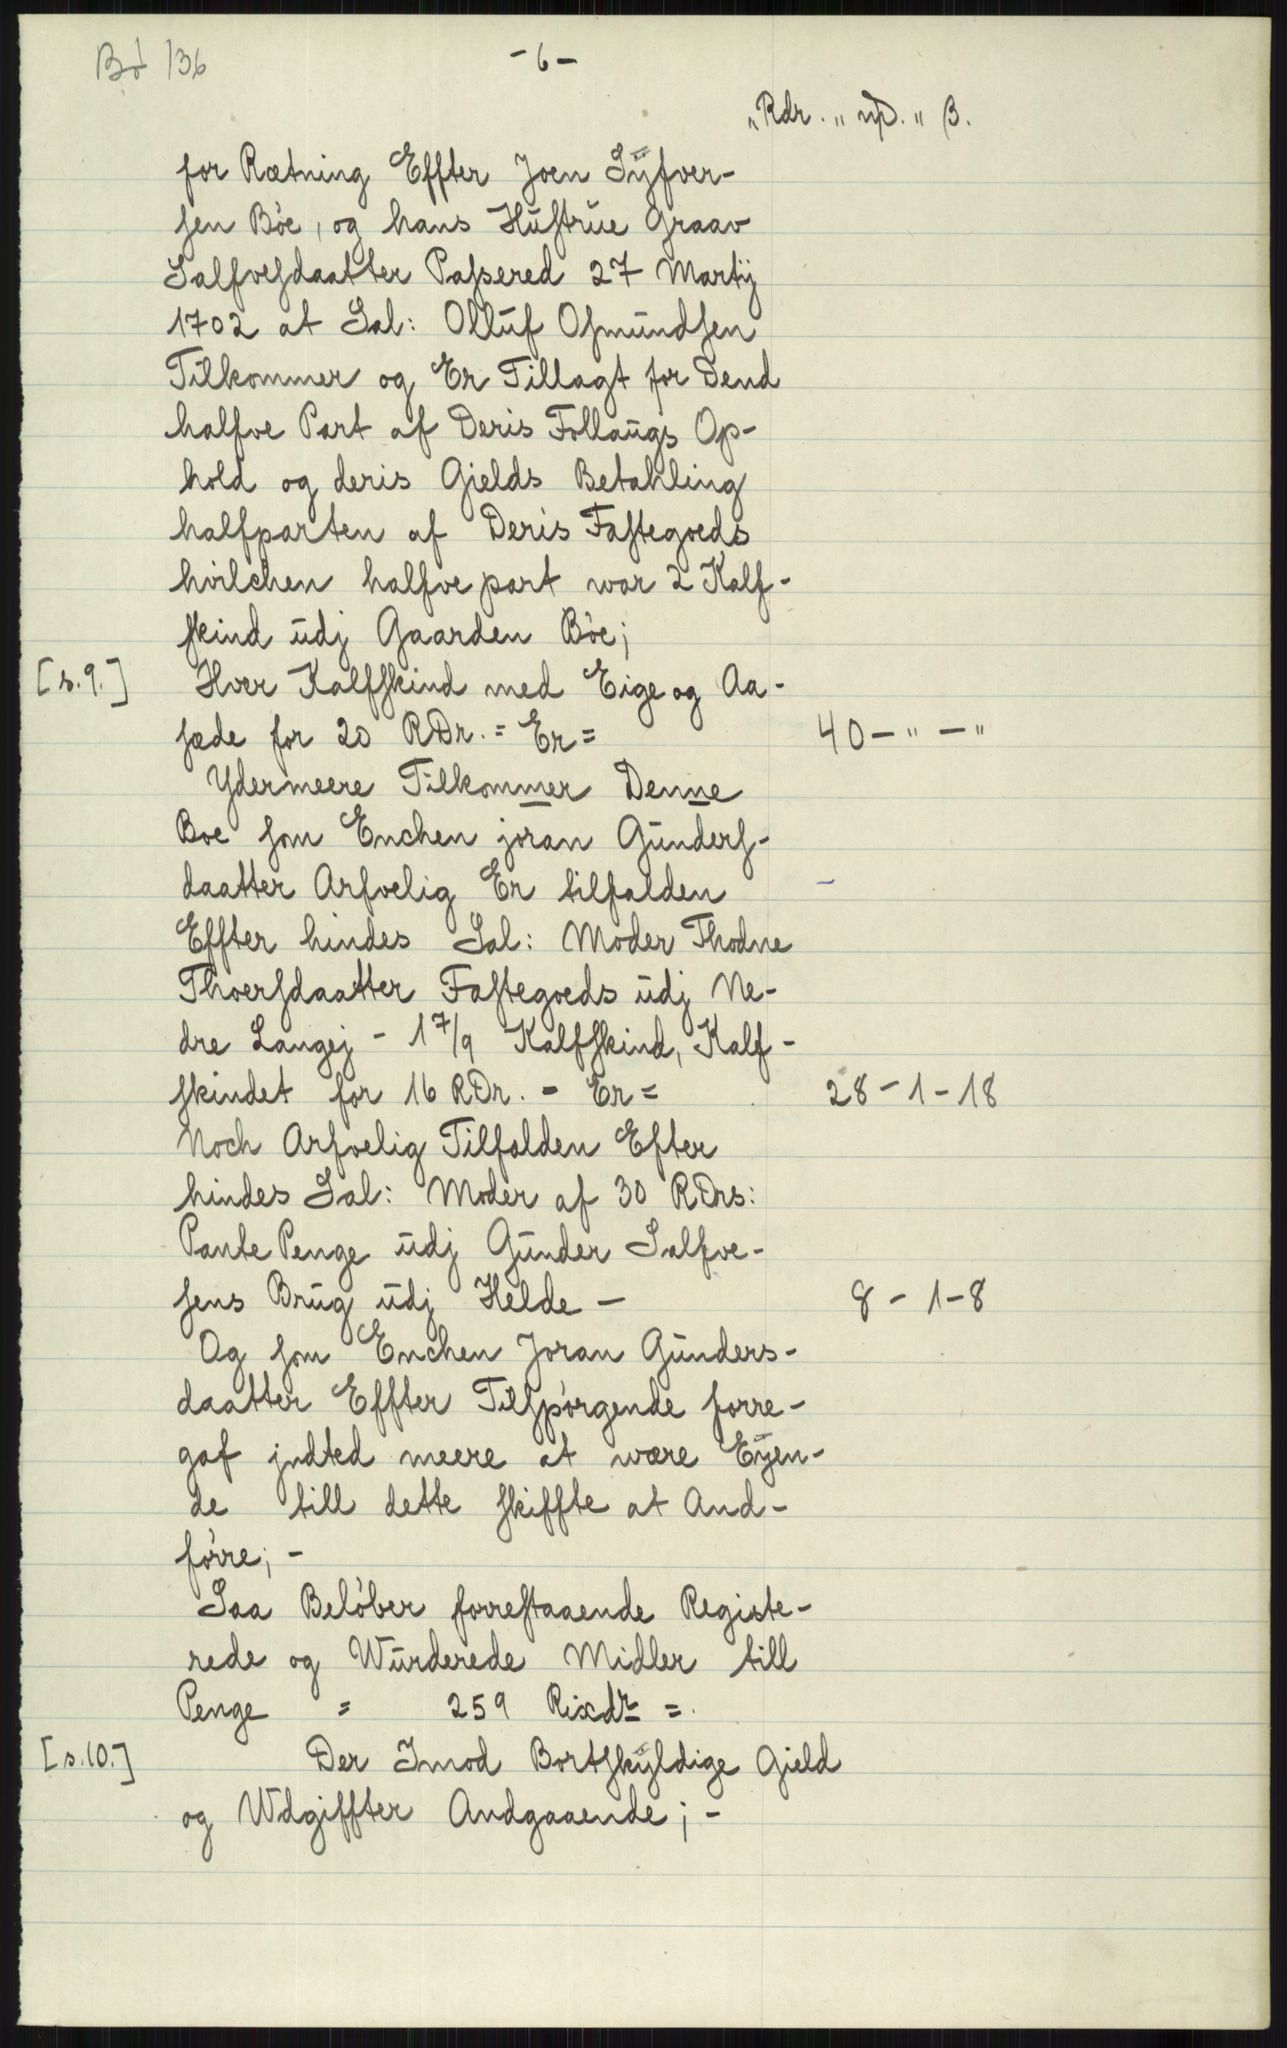 Bö 136
- 6 -
"Rdr. " mþ. " β.
for Rætning Effter Joen Syfver-
sen Böe, og hans Hustrue Graav
Salfvesdaatter Passered 27 Martÿ
1702 at Sal: Olluf Osmundsen
Tilkommer og Er Tillagt for Dend
halfve Part af Deris Follaugs Op-
hold og deris Gields Betahling
halfparten af Deris Fastegoeds
hvilchen halfve part war 2 Kalf-
skind udj Gaarden Böe;
[s.9.] Hver Kalfskind med Eige og Aa-
sæde for 20 RDr. = Er = 40 - " - "
Ydermeere Tilkommer Denne
Boe som Enchen joran Gunders-
daatter Arfvelig Er tilfalden
Effter hindes Sal: Moder Thodne
Thoersdaatter Fastegoeds udj Ne-
dre Langej - 1 7/9 Kalfskind, Kalf-
skindet for 16 RDr. = Er = 28 - 1 - 18
Noch Arfvelig Tilfalden Efter
hindes Sal: Moder af 30 RDrs:
Pante Penge udj Gunder Salfve-
sens Brug udj Helde - 8 - 1 - 8
Og som Enchen Joran Gunders-
daatter Effter Tilspörgende forre-
gaf jndted meere at være Eÿen-
de till dette skiffte at And-
förre; -
Saa Belöber forrestaaende Registe-
rede og Wurderede Midler till
Penge = 259 Rixdr =.
[s.10.] Der Imod Bortskÿldige Gield
og Wdgiffter Andgaaende; -